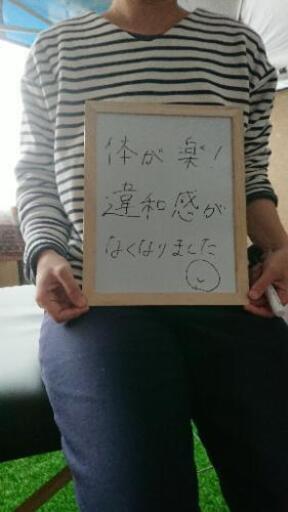 体が楽!
違和感が
なくなりました